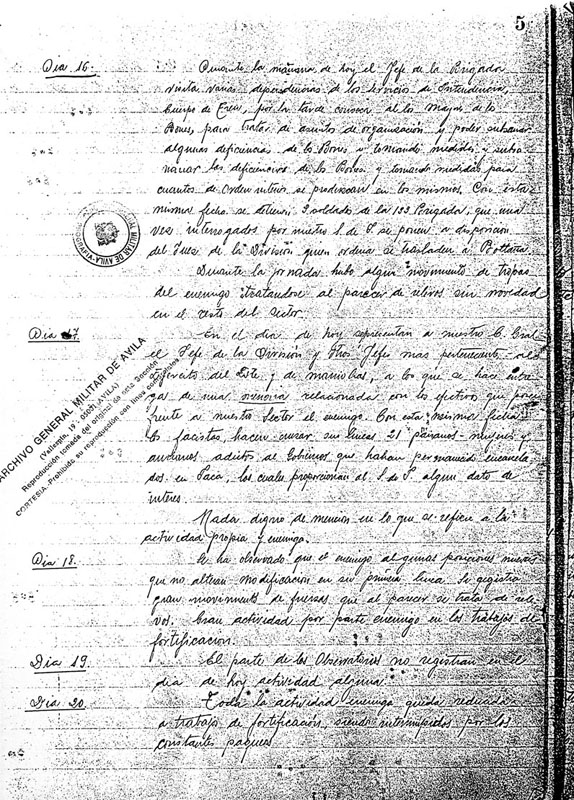 5
Dia 16. Durante la mañana de hoy el Jefe de la Brigada
visita varias dependencias de los servicios de Intendencia,
Cuerpo de Tren, por la tarde a los Mayor de los
Bones, para tratar de asuntos de organización y poder subsanar
algunas deficiencias de los Bones y tomando medidas y subsa
nanar las deficiencias de los Bones y tomando medidas para
cuantos de orden interno se produzcan en los mismos. Con esta
misma fecha se detienen 3 soldados de la 133 Brigada, que una
vez interrogados por nuestro S. de I. se ponen a disposición
del Juez de la División quien ordena se trasladen a Boltaña
Durante la jornada hubo algún movimiento de tropas
del enemigo tratandose al parecer de relevos sin novedad
en el resto del Sector.
Dia 17. En el dia de hoy a nuestro C. Gral
el Jefe de la División y otros Jefes mas pertenecientes al
Ejercito del Este y de maniobra, a los que se hace entre
ga de una memoria relacionada con los efectivos que posee
frente a nuestro Sector el enemigo. Con esta misma fecha
los facistas hacen cruzar sus lineas 21 paisanos mujeres y
ancianos adictos al Gobierno que habian permanecido encarcela
dos en Jaca, los cuales proporcionan al S. de I. algún dato de
interes.
Nada digno de mencion en lo que se refiere a la
actividad propia y enemiga.
Dia 18. Se ha observado que el enemigo algunas posiciones nuevas
que no alteran modificación en su primera linea. Se registra
gran movimiento de fuerzas que al parecer se trata de rele
vos. Gran actividad por parte enemiga en los trabajos de
fortificación.
Dia 19 El parte de los Observatorios no registran en el
dia de hoy actividad alguna
Dia 20. Toda la actividad enemiga queda reducida
a trabajos de fortificación, siendo interrumpidos por los
constantes paqueos
ARCHIVO GENERAL MILITAR DE AVILA
(Vallespin, 19 - 05001 AVILA)
Reproducción tomada del original de esta Sección
CORTESIA - Prohibida su reproducción con fines
MILITAR DE AVILA